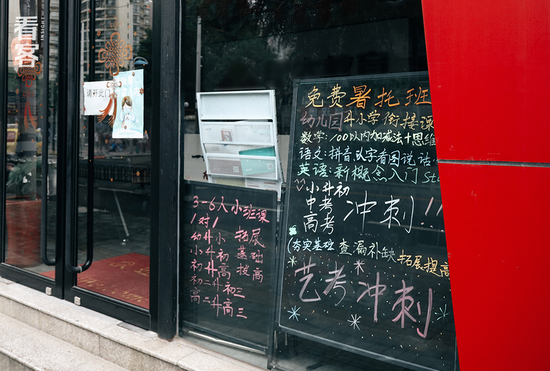 看客
3-6人小班课
1对1
幼升小 拓展
小升初 基础
初升高 提高
初二升初三
高二升高三
免费暑托班
幼儿园升小学衔接课
数学:100以内加减法+思维
语文:拼音、认字看图说话
英语:新概念入门 St
小升初
中考
高考
冲刺!!!
(夯实基础 查漏补缺 拓展提高
艺考冲刺